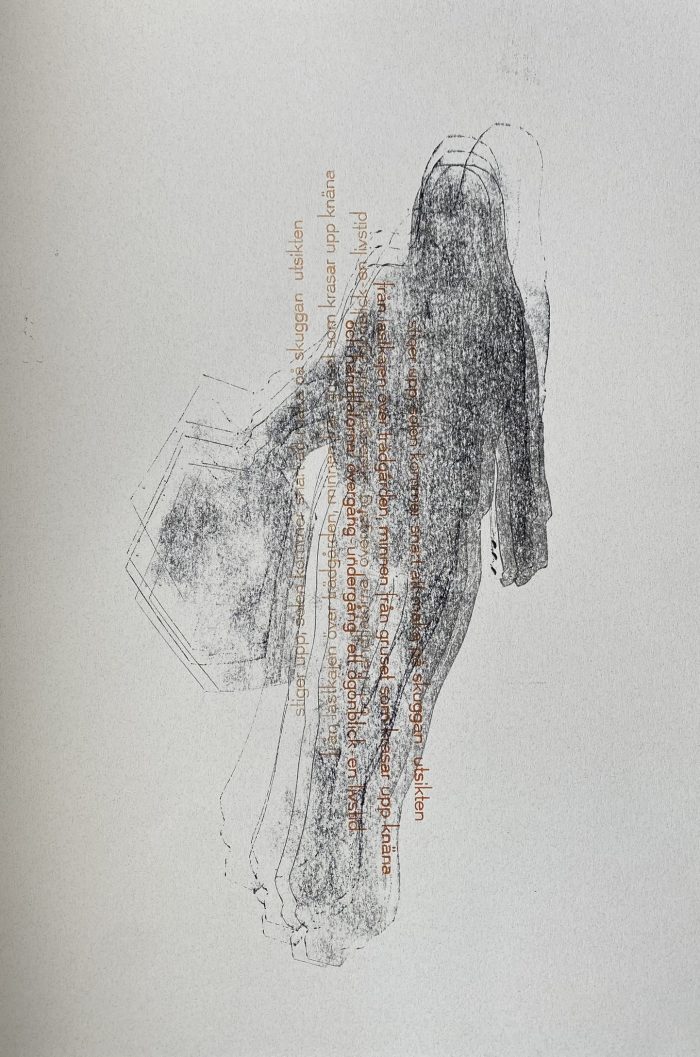 stiger upp, solen kommer snart att maka på skuggan utsikten
från lastkajen över trädgården, minnen från gruset som krasar upp knäna
och handflatorna, övergång undergång ett ögonblick en livstid
stiger upp, solen kommer snart att maka på skuggan utsikten
från lastkajen över trädgården, minnen från gruset som krasar upp knäna
och handflatorna, övergång undergång ett ögonblick en livstid